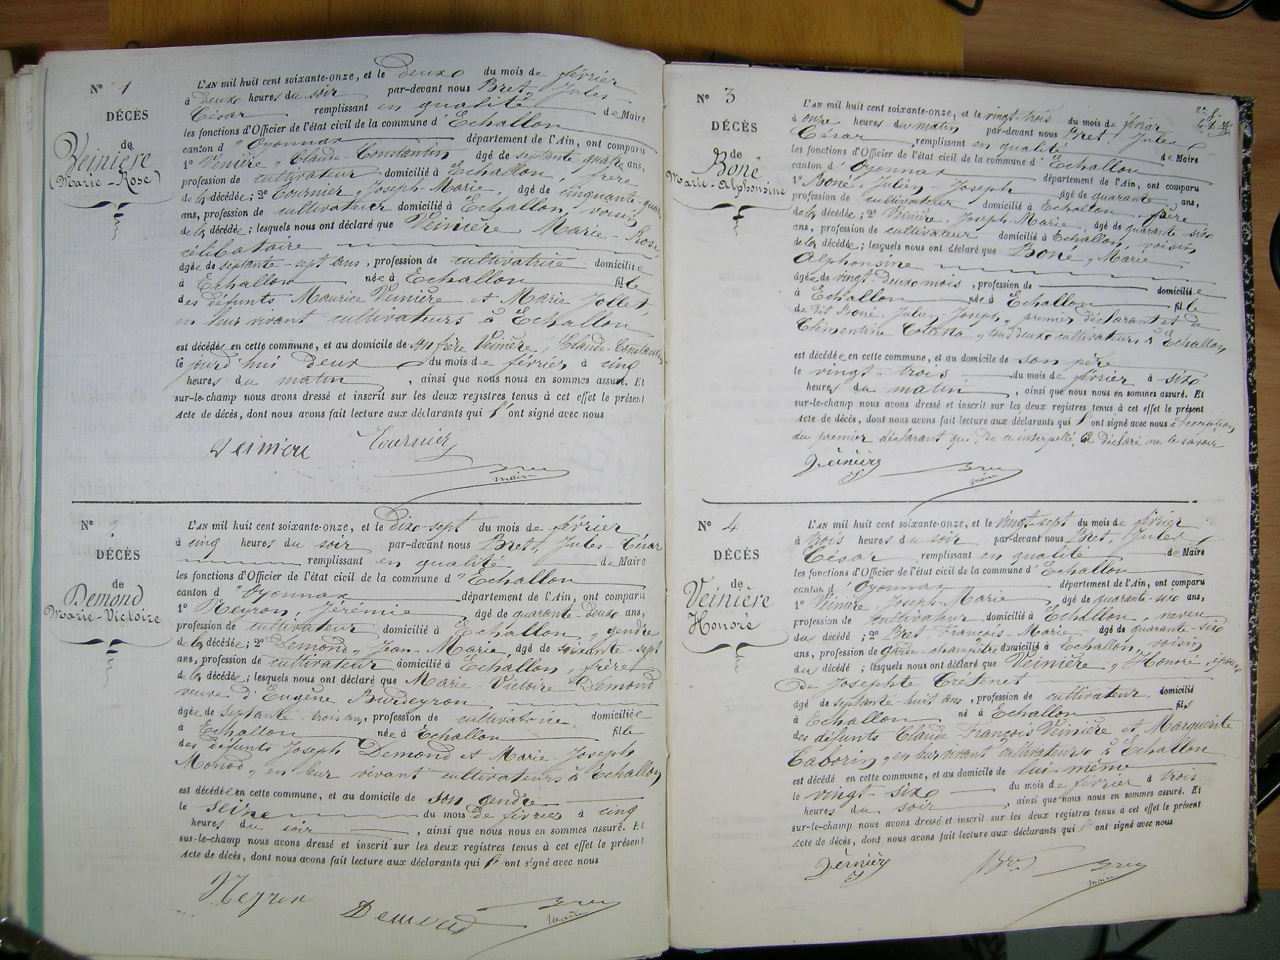 N° 1
DÉCÈS
de
Veinière
(Marie-Rose)
L'AN mil huit cent soixante-onze, et le deuxe du mois de février
à deuxe heures du soir par-devant nous Bret, Jules
César remplissant en qualité de Maire
les fonctions d'Officier de l'état civil de la commune d'Echallon
canton d'Oyonnax département de l'Ain, ont comparu
1° Veinière, Claude Constantin âgé de septante quatre ans,
profession de cultivateur domicilié à Echallon, frère
de la décédée; 2° Tournier, Joseph-Marie, âgé de cinquante-quatre
ans, profession de cultivateur domicilié à Echallon, voisin
de la décédée; lesquels nous ont déclaré que Veinière Marie-Rose
célibataire
âgée de septante-sept ans, profession de cultivatrice domiciliée
à Echallon née à Echallon fille
des défunts Maurice Veinière et Marie Jollet,
en leur vivant cultivateurs à Echallon
est décédée en cette commune, et au domicile de son frère Veinière, Claude-Constantin
le jourd'hui deux du mois de février à cinq
heures du matin, ainsi que nous nous en sommes assuré. Et
sur-le-champ nous avons dressé et inscrit sur les deux registres tenus à cet effet le présent
Acte de décès, dont nous avons fait lecture aux déclarants qui l'ont signé avec nous
Veinière Tournier
Bret
maire
N°
DÉCÈS
de
Demond
Marie-Victoire
L'AN mil huit cent soixante-onze, et le dixe-sept du mois de février
à cinq heures du soir par-devant nous Bret, Jules-César
remplissant en qualité de Maire
les fonctions d'Officier de l'état civil de la commune d'Echallon
canton d'Oyonnax département de l'Ain, ont comparu
1° Neyron, Jérémie âgé de quarante-deuxe ans,
profession de cultivateur domicilié à Echallon, gendre
de la décédée; 2° Demond, Jean-Marie, âgé de soixante-sept
ans, profession de cultivateur domicilié à Echallon, frère
de la décédée; lesquels nous ont déclaré que Marie Victoire Demond
veuve d'Eugène Burdeyron
âgée de septante-trois ans, profession de cultivatrice domiciliée
à Echallon née à Echallon fille
des défunts Joseph Demond et Marie Joseph
Monod, en leur vivant cultivateurs à Echallon
est décédée en cette commune, et au domicile de son gendre
le seize du mois de février à cinq
heures du soir, ainsi que nous nous en sommes assuré. Et
sur-le-champ nous avons dressé et inscrit sur les deux registres tenus à cet effet le présent
Acte de décès, dont nous avons fait lecture aux déclarants qui l'ont signé avec nous
Neyron Demond Bret
maire
N° 3
DÉCÈS
de
Boné
Marie-Alphonsine
L'AN mil huit cent soixante-onze, et le vingt-trois du mois de février
à onze heures du matin par-devant nous Bret, Jules
César remplissant en qualité de Maire
les fonctions d'Officier de l'état civil de la commune d'Echallon
canton d'Oyonnax département de l'Ain, ont comparu
1° Boné, Julien-Joseph âgé de quarante ans,
profession de cultivateur domicilié à Echallon père
de la décédée; 2° Veinière, Joseph Marie, âgé de quarante-sixe
ans, profession de cultivateur domicilié à Echallon, voisin
de la décédée; lesquels nous ont déclaré que Boné, Marie
Alphonsine
âgée de vingt deuxe mois, profession de domiciliée
à Echallon née à Echallon fille
de dit Boné, Julien Joseph, premier déclarant et de
Clémentine tous deux cultivateurs à Echallon
est décédée en cette commune, et au domicile de son père
le vingt-trois du mois de février à sixe
heures du matin, ainsi que nous nous en sommes assuré. Et
sur-le-champ nous avons dressé et inscrit sur les deux registres tenus à cet effet le présent
Acte de décès, dont nous avons fait lecture aux déclarants qui l'ont signé avec nous à l'exception
du premier déclarant qui, de ce interpellé, a déclaré ne le savoir
Bret
maire
N° 4
DÉCÈS
de
Veinière
Honoré
L'AN mil huit cent soixante-onze, et le vingt-sept du mois de février
à trois heures du soir par-devant nous Bret, Jules
César remplissant en qualité de Maire
les fonctions d'Officier de l'état civil de la commune d'Echallon
canton d'Oyonnax département de l'Ain, ont comparu
1° Veinière, Joseph-Marie, âgé de quarante-six ans,
profession de cultivateur domicilié à Echallon, neveu
du décédé; 2° Bret François-Marie âgé de quarante-sixe
ans, profession de garde-champêtre, domicilié à Echallon voisin
du décédé; lesquels nous ont déclaré que Veinière, Honoré, époux
de Josephte Crétenet
âgé de septante-huit ans, profession de cultivateur domicilié
à Echallon né à Echallon fils
des défunts Claude François Veinière et Marguerite
Caborin, en leur vivant cultivateurs à Echallon
est décédé en cette commune, et au domicile de lui-même
le vingt-sixe du mois de février à trois
heures du soir, ainsi que nous nous en sommes assuré. Et
sur-le-champ nous avons dressé et inscrit sur les deux registres tenus à cet effet le présent
Acte de décès, dont nous avons fait lecture aux déclarants qui l'ont signé avec nous
Bret
maire